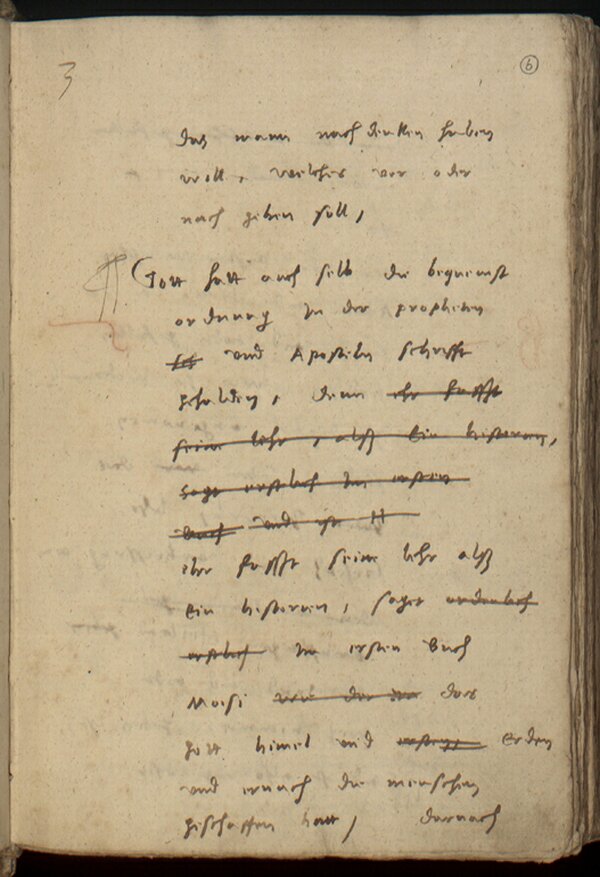 3
6
das mann nach denken haben
will, welches vor oder
nach gehen soll,
Gott hatt auch selb die bequemst
ordnung in der propheten
und Aposteln schrifft
gehalden, denn ehr fasst
seine lehr, alß ein historien,
saget erstlich im ersten
Buch und ist
ehr fasst seine lehr alß
ein historien, saget ordenlich
erstlich Im ersten Buch
Moisi wie der das
gott himel und erden
und ernach die menschen
geschaffen hatt, darnach